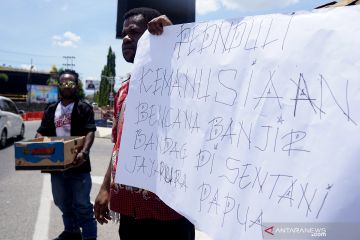 PEDULI
KEMANUSIAAN
BENCANA BANJIR
BANDANG DI SENTANI
JAYAPURA PAPUA
ANTARANEWS.com